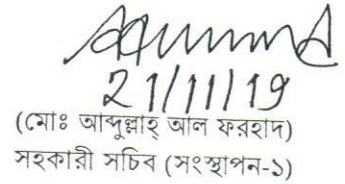 21/11/19
(মোঃ আব্দুল্লাহ্ আল ফরহাদ)
সহকারী সচিব (সংস্থাপন-১)